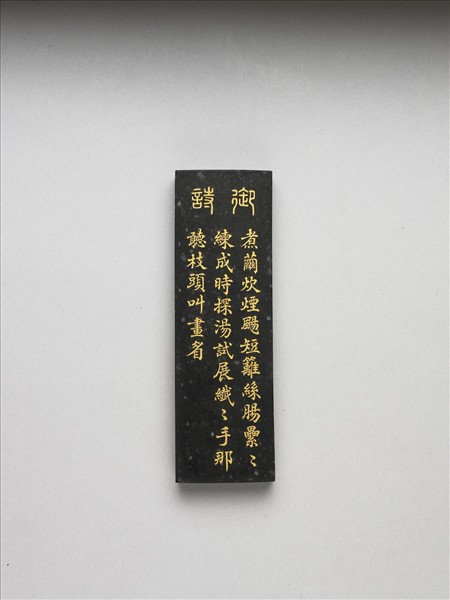 御詩
煮繭炊煙颺短籬絲腸纍〻
練成時探湯試展纖〻手那
聽枝頭叫畫眉